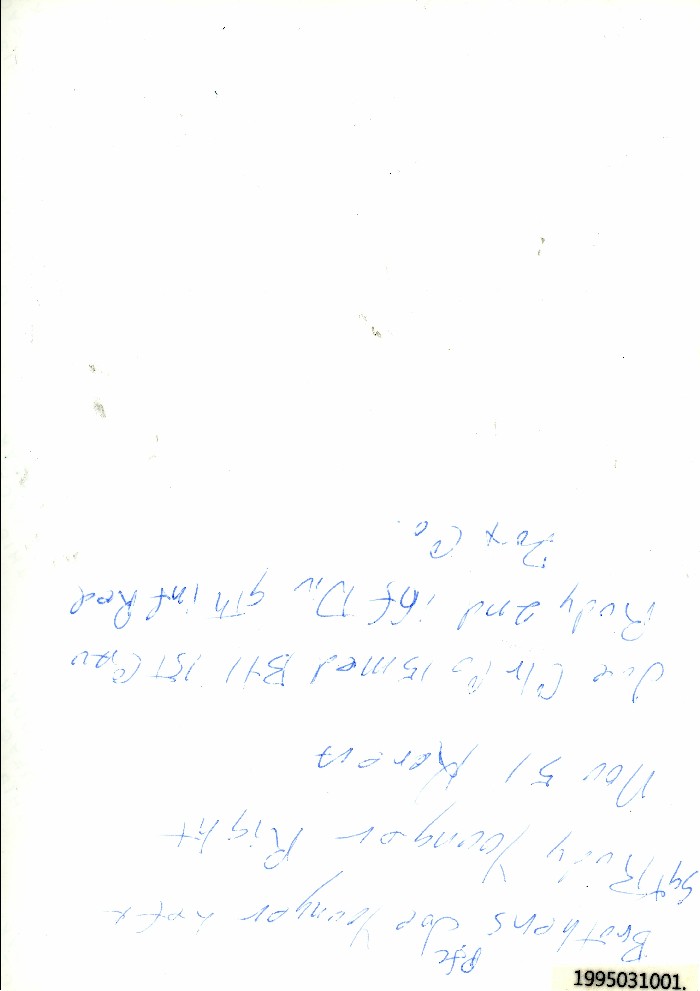 Brothers Pfc Joe Younger Left
Sgt Rudy Younger Right
Nov 51 Korea
Joe Clr Co 15 med Btl 1st Cav
Rudy 2nd inf Div 9th inf Reg
Fox Co
1995031001.